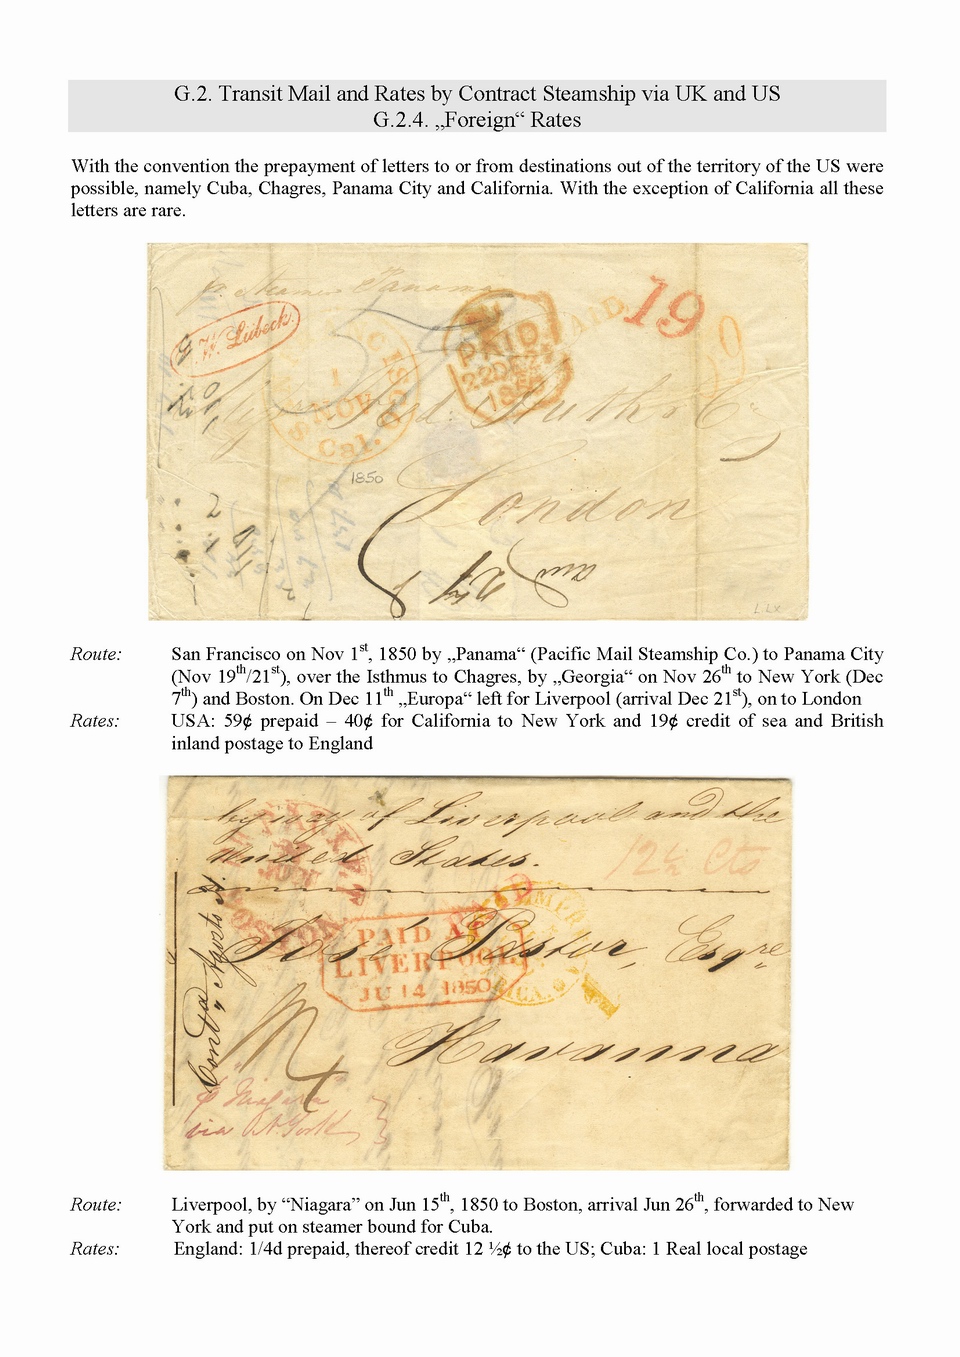 G.2. Transit Mail and Rates by Contract Steamship via UK and US
G.2.4. „Foreign“ Rates
With the convention the prepayment of letters to or from destinations out of the territory of the US were
possible, namely Cuba, Chagres, Panama City and California. With the exception of California all these
letters are rare.
pr Steamer Panama
W. Lübeck
SAN FRANCISCO
1
NOV
Cal.
PAID
22 DE
PAID
19
1850
London
L.LX
Route: San Francisco on Nov 1st, 1850 by „Panama“ (Pacific Mail Steamship Co.) to Panama City
(Nov 19th/21st), over the Isthmus to Chagres, by „Georgia“ on Nov 26th to New York (Dec
7th) and Boston. On Dec 11th „Europa“ left for Liverpool (arrival Dec 21st), on to London
Rates: USA: 59¢ prepaid – 40¢ for California to New York and 19¢ credit of sea and British
inland postage to England
by way of Liverpool and the
United States.
12½ Cts
BOSTON
PAID AT
LIVERPOOL
JU 14 1850
José Pastor, Esqre
Havanna
pr Niagara
via N. York
Route: Liverpool, by “Niagara” on Jun 15th, 1850 to Boston, arrival Jun 26th, forwarded to New
York and put on steamer bound for Cuba.
Rates: England: 1/4d prepaid, thereof credit 12 ½¢ to the US; Cuba: 1 Real local postage